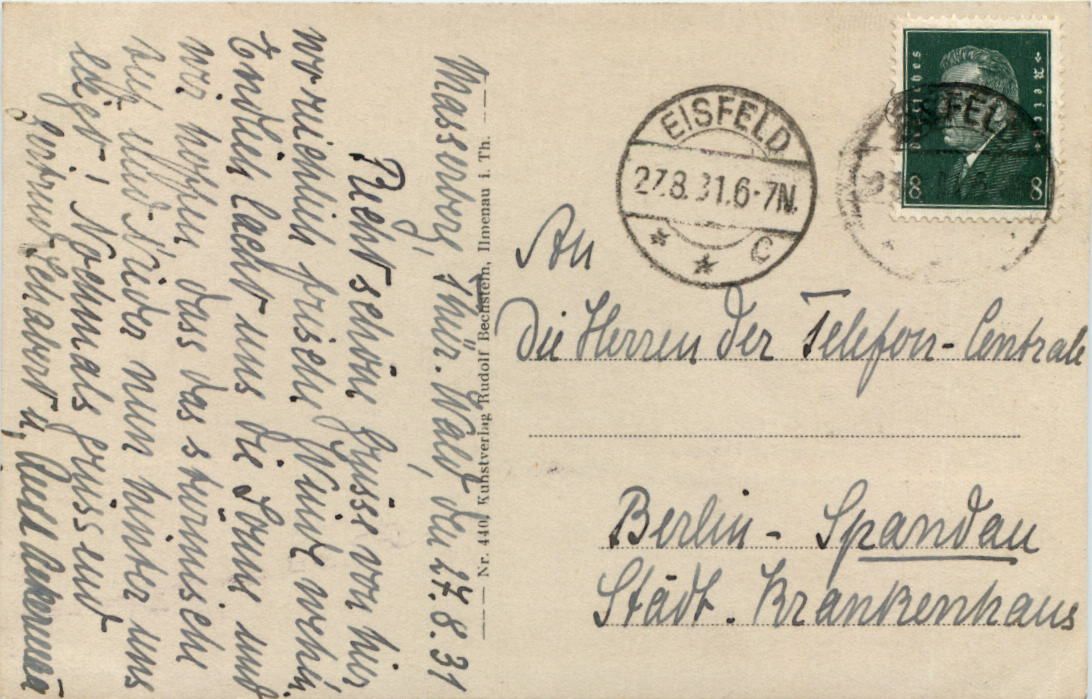 Masserberg, Thür. Wald, den 27.8.31
Recht schöne Grüsse von hier,
wo reichlich frische Winde wehen,
Endlich lacht uns die Sonne und
wir hoffen, dass das stürmische
und Nieder nun hinter uns
liegt! Nochmals grüssend
Gertrud u.
Nr. 440, Kunstverlag Rudolf Bechstein, Ilmenau i. Th.
EISFELD
27.8.31.6-7N.
* * C
Deutsches Reich
8 8
EISFELD
An
Die Herren der Telefon-Centrale
Berlin - Spandau
Städt. Krankenhaus